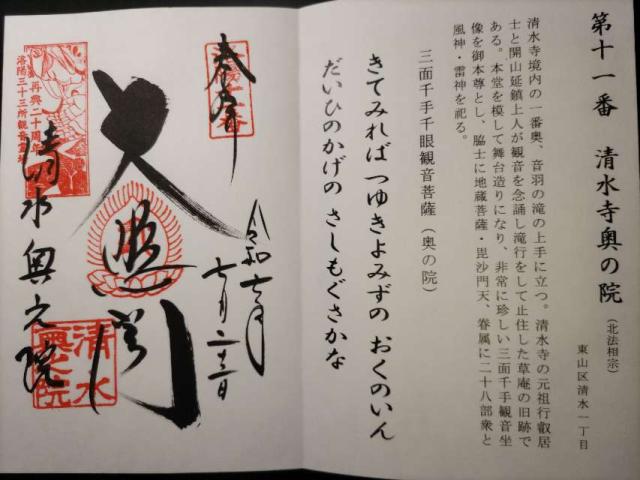 第十一番 清水寺奥の院（北法相宗）
東山区清水一丁目
清水寺境内の一番奥、音羽の滝の上手に立つ。清水寺の元祖行叡居
士と開山延鎮上人が観音を念誦し滝行をして止住した草庵の旧跡で
ある。本堂を模して舞台造りになり、非常に珍しい三面千手観音坐
像を御本尊とし、脇士に地蔵菩薩・毘沙門天、眷属に二十八部衆と
風神・雷神を祀る。
三面千手千眼観音菩薩（奥の院）
きてみれば つゆきよみずの おくのいん
だいひのかげの さしもぐさかな
奉拝
洛陽十一番
大悲閣
清水奥之院
再興二十周年
洛陽三十三所観音霊場
清水
奥之院